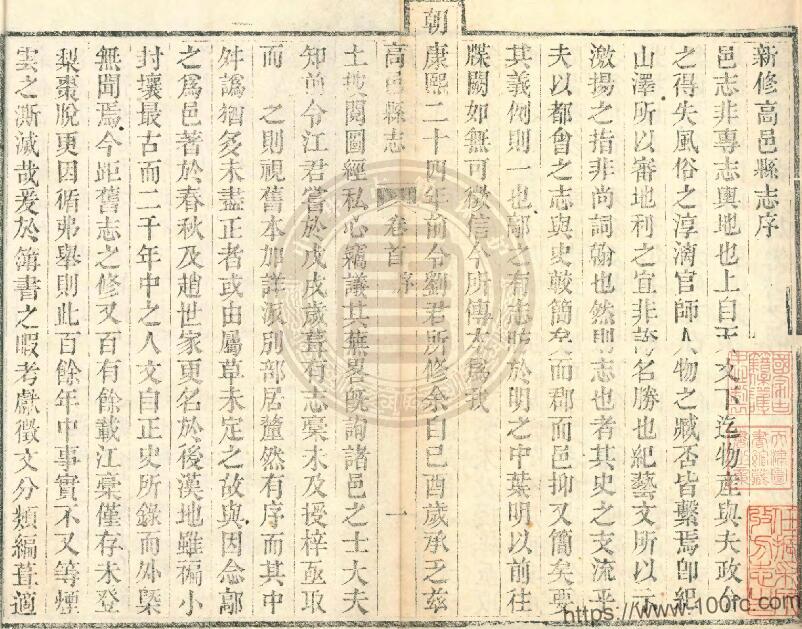 新修高邑縣志序
邑志非專志輿地也上自天文下迄物產與夫政令
之得失風俗之淳漓官師人物之臧否皆繫焉卽紀
山澤所以審地利之宜非誇名勝也紀藝文所以示
激揚之指非尚詞翰也然則志也者其史之支流乎
夫以都會之志與史較簡矣而郡而邑抑又簡矣要
其義例則一也鄗之有志昉於明之中葉明以前往
牒闕如無可徵信今所傳本爲我
朝康熙二十四年前令劉君所修余自己酉歲承乏茲
高邑縣志 卷首 序 一
土披閱圖經私心竊議其蕪畧旣詢諸邑之士大夫
知前令江君嘗於戊戌歲葺有志稾未及授梓亟取
而 之則視舊本加詳派別部居釐然有序而其中
舛譌猶多未盡正者或由屬草未定之故與因念鄗
之爲邑著於春秋及趙世家更名於後漢地雖褊小
封壤最古而二千年中之人文自正史所錄而外槩
無聞焉今距舊志之修又百有餘載江稾僅存未登
梨棗脫更因循弗舉則此百餘年中事實不又等煙
雲之澌滅哉爰於簿書之暇考獻徵文分類編葺適
https://www.100fc.com